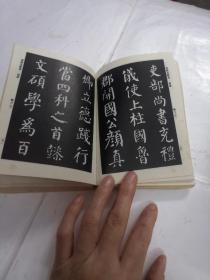 吏部尚書充禮
儀使上柱國魯
郡開國公顏真
卿立德踐行
當四科之首懿
文碩學為百